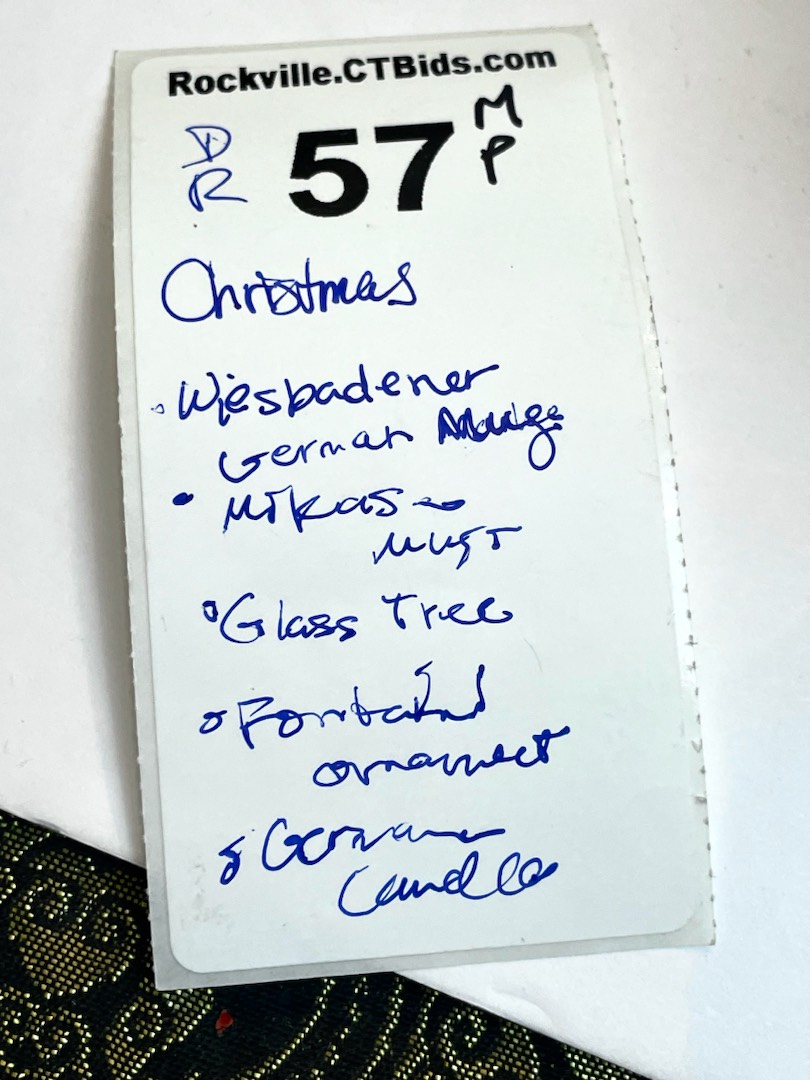 Rockville.CTBids.com
DR 57 MP
Christmas
• Wiesbadener
German
• Mikasa
• Glass Tree
ornament
• German
Candle